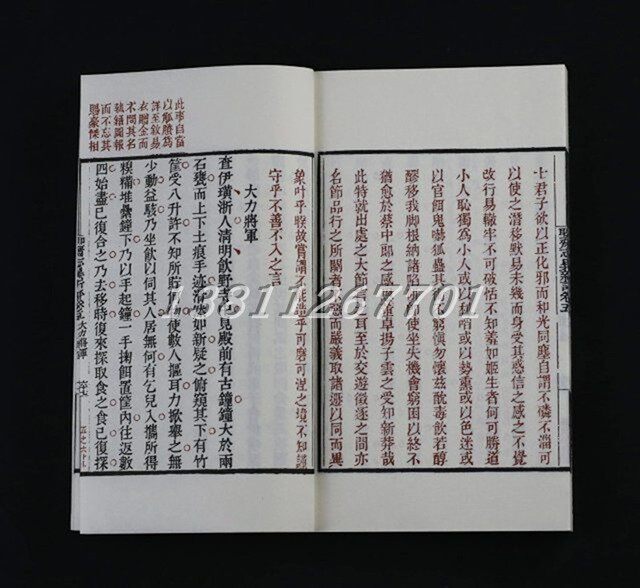 士君子欲以正化邪而和光同塵自謂不磷不淄可
以使之潛移默易未幾而身受其惑信之感之不覺
改行易轍牢不可破恬不知羞如姬生者何可勝道
小人恥獨為小人或以賄啗或以勢熏或以色迷或
以官餌鬼嚇狐蠱其窮愼勿懷茲酖毒飲若醇
醪移我脚根納諸陷使坐失機會窮困以終不
猶愈於蔡中郎之感董卓揚子雲之受知新莽哉
此特就出處之大節至於交遊徵逐之間亦
名節品行之所關者而嚴義取諸遜以同而異
象叶乎睽故嘗謂不能造乎可磨可涅之境不知謹
守乎不善不入之言
大力將軍
查伊璜浙人清明飲野寺中見殿前有古鐘鐘大於兩
石甕而上下土痕手迹滑然如新疑之俯窺其下有竹
筐受八升許不知所貯何物使數人摳耳力掀舉之無
少動益駭乃坐飲以伺其人居無何有乞兒入攜所得
糗糒堆壘鐘下乃以手起鐘一手掬餌置筐內往返數
四始盡已復合之乃去移時復來探取食之食已復探
此事自當
以觚賸為
詳至敘易
衣贈金而
不問其名
籍圖報
而不忘其
賜豪傑相
大力將軍
13811267701